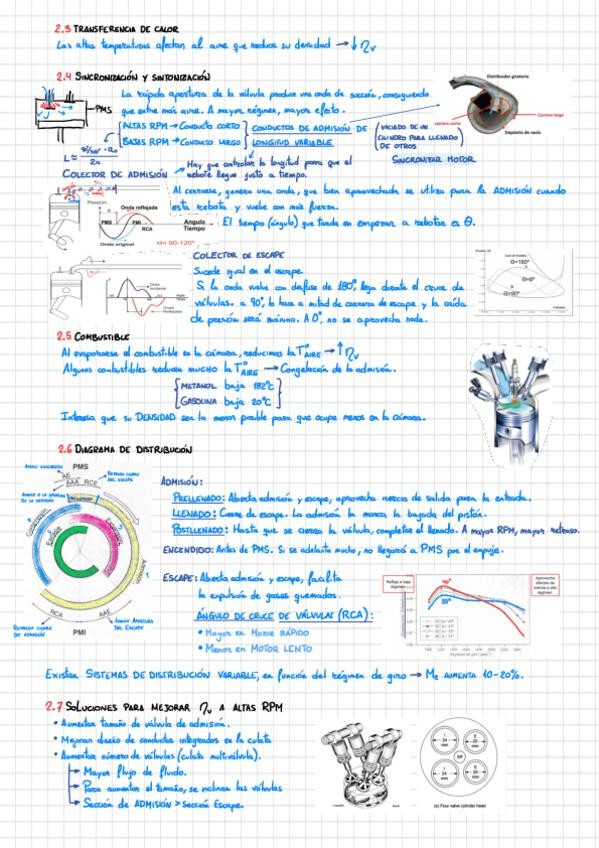 2.3 TRANSFERENCIA DE CALOR
Las altas temperaturas afectan al aire que reduce su densidad → ↓ ηv
2.4 SINCRONIZACIÓN Y SINTONIZACIÓN
La rápida apertura de la válvula produce una onda de succión, consiguiendo
que entre más aire. A mayor régimen, mayor efecto.
PMS
ALTAS RPM → CONDUCTO CORTO
BAJAS RPM → CONDUCTO LARGO
CONDUCTOS DE ADMISIÓN DE
LONGITUD VARIABLE
VACIADO DE UN
CILINDRO PARA LLENADO
DE OTROS
SINCRONIZAR MOTOR
Distribuidor giratorio
Camino largo
camino corto
Depósito de vacío
COLECTOR DE ADMISIÓN
Hay que controlar la longitud para que el
rebote llegue justo a tiempo.
Al cerrarse, genera una onda, que bien aprovechada se utiliza para la ADMISIÓN cuando
esta rebota y vuelve con más fuerza.
El tiempo (ángulo) que tarda en empezar a rebotar es Θ.
Presión
Onda reflejada
PMS
PMI
RCA
Angulo
Tiempo
Onda original
Θ= 90-120°
COLECTOR DE ESCAPE
Sucede igual en el escape.
Si la onda vuelve con desfase de 180°, llega durante el cruce de
válvulas. a 90°, lo hace a mitad de carrera de escape y la caída
de presión será máximo. A 0°, no se aprovecha nada.
Onda
Incidente
Onda
Reflejada
Θ=180°
Θ=0°
Θ=90°
2.5 COMBUSTIBLE
Al evaporarse el combustible en la cámara, reducimos la T° AIRE → ↑ ηv
Algunos combustibles reducen MUCHO la T° AIRE → Congelación de la admisión.
METANOL baja 182°C
GASOLINA baja 20°C
Interesa que su DENSIDAD sea la menor posible para que ocupe menos en la cámara.
2.6 DIAGRAMA DE DISTRIBUCIÓN
AVANCE ENCENDIDO
PMS
RETRASO CIERRE
DEL ESCAPE
AE
AAA RCE
AVANCE A LA APERTURA
DE LA ADMISIÓN
Compresión
Escape
Expansión
Admisión
RCA
AAE
RETRASO CIERRE
DE ADMISIÓN
PMI
AVANCE APERTURA
DEL ESCAPE
ADMISIÓN:
PRELLENADO: Abierta admisión y escape, aprovecha inercia de salida para la entrada.
LLENADO: Cierre de escape. La admisión la marca la bajada del pistón.
POSTLLENADO: Hasta que se cierra la válvula, completar el llenado. A mayor RPM, mayor retraso.
ENCENDIDO: Antes de PMS. Si se adelanta mucho, no llegará a PMS por el empuje.
ESCAPE: Abierta admisión y escape, facilita
la expulsión de gases quemados.
ÁNGULO DE CRUCE DE VÁLVULAS (RCA):
• Mayor en MOTOR RÁPIDO
• Menor en MOTOR LENTO
Reflujo a bajo
régimen
Aprovecha
efectos de
inercia a alto
régimen
Existen SISTEMAS DE DISTRIBUCIÓN VARIABLE, en función del régimen de giro → Me AUMENTA 10-20%.
2.7 SOLUCIONES PARA MEJORAR ηv A ALTAS RPM
• Aumentar tamaño de válvula de admisión.
• Mejorar diseño de conductos integrados en la culata
• Aumentar número de válvulas (culata multiválvula).
Mayor flujo de fluido.
Para aumentar el tamaño, se inclinan las válvulas
Sección de ADMISIÓN > Sección Escape.
I
24
mm
E
20
mm
SP
I
24
mm
E
20
mm
(a) Four valve cylinder head